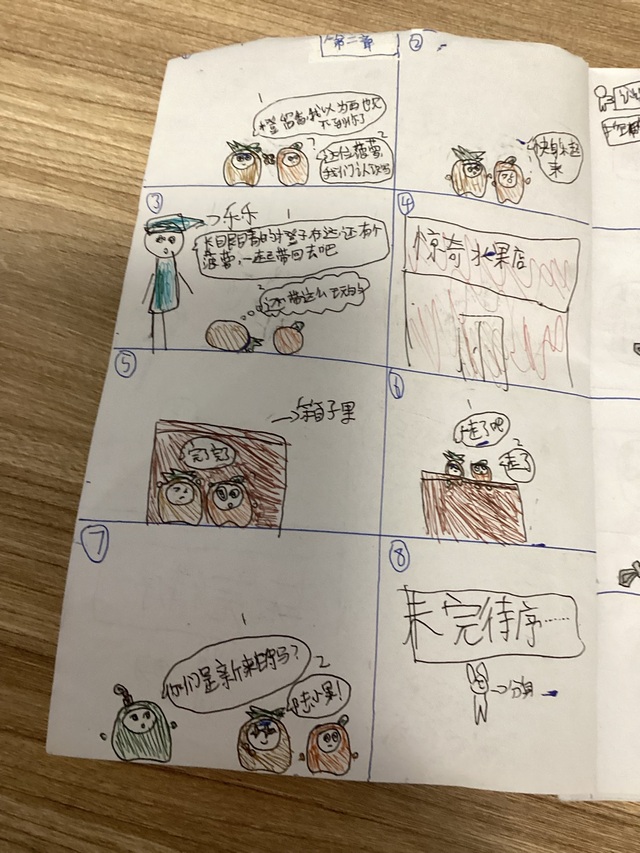 第二章
②
1
橙留香,我以为再也见
不到你了
?
2
这位菠萝,
我们认识吗
快躲起
来
③
→乐乐
1
长眼睛的橙子在这,还有个
菠萝,一起带回去吧
2
④
惊奇水果店
⑤
→箱子里
完了完了
⑥
1
走了吧
2
走了
⑦
1
你们是新来的吗?
2
⑧
未完待序……
→分身